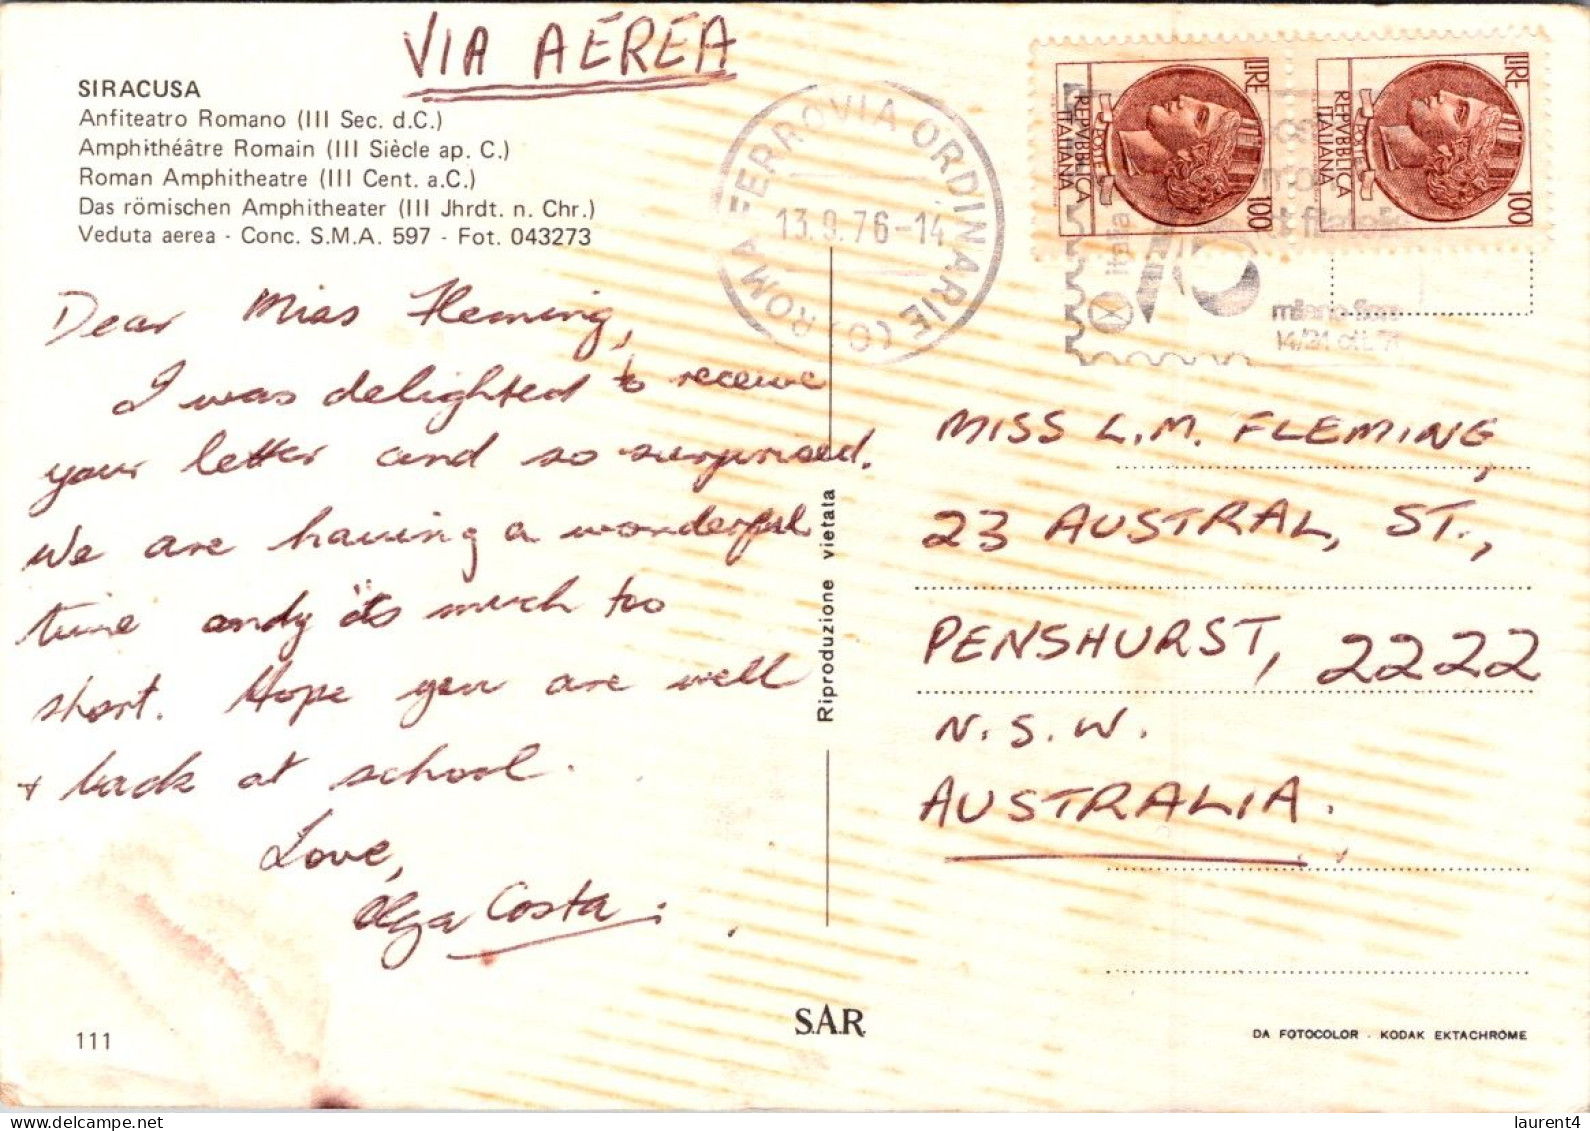 VIA AEREA
SIRACUSA
Anfiteatro Romano (III Sec. d.C.)
Amphithéâtre Romain (III Siècle ap. C.)
Roman Amphitheatre (III Cent. a.C.)
Das römischen Amphitheater (III Jhrdt. n. Chr.)
Veduta aerea - Conc. S.M.A. 597 - Fot. 043273
Dear Miss Fleming,
I was delighted to receive
your letter and so surprised.
We are having a wonderful
time andy its much too
short. Hope you are well
+ back at school.
Love,
Olga Costa.
111
Riproduzione vietata
S.A.R.
ROMA FERROVIA ORDINARIE (O)
13.9.76-14
LIRE 100
POSTE
REPVBBLICA
ITALIANA
LIRE 100
REPVBBLICA
ITALIANA
italia 76
milano
14/24 ott. 7
MISS L.M. FLEMING,
23 AUSTRAL, ST.,
PENSHURST, 2222
N.S.W.
AUSTRALIA.
DA FOTOCOLOR - KODAK EKTACHROME
laurent4